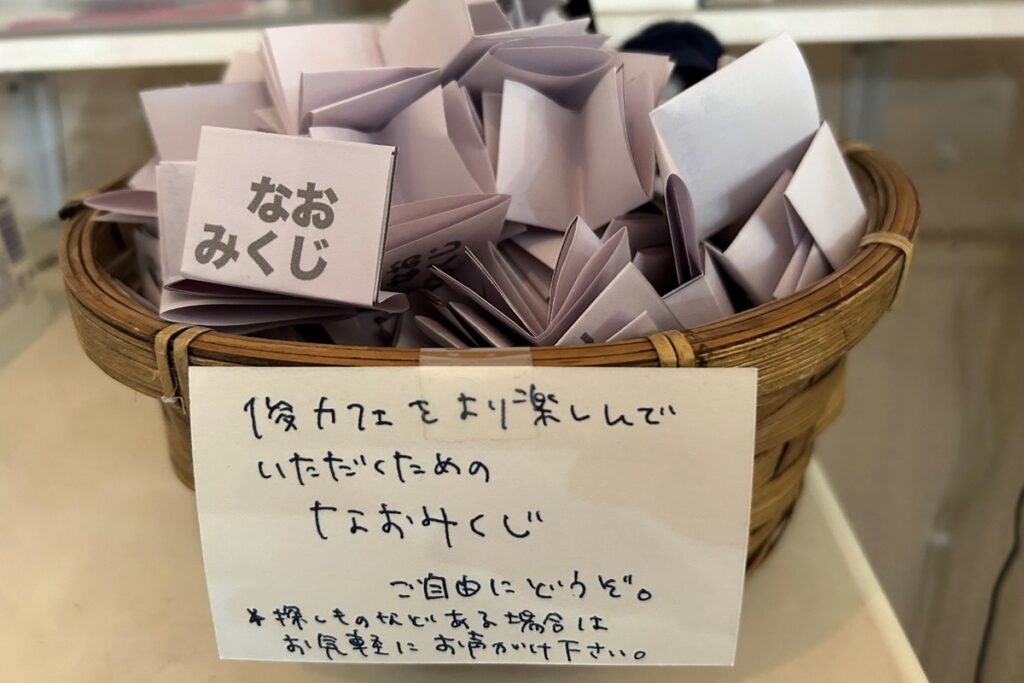 なお
みくじ
俊カフェをより楽しんで
いただくための
なおみくじ
ご自由にどうぞ。
*探しものなどある場合は
お気軽にお声がけ下さい。